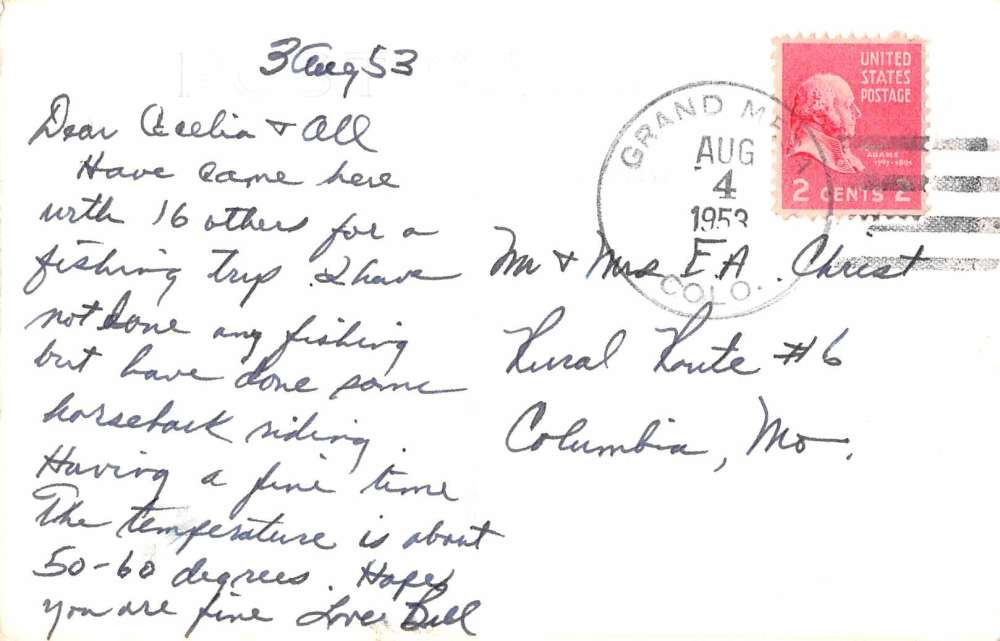 3 Aug 53
Dear Cecelia + All
Have came here
with 16 others for a
fishing trip. I have
not done any fishing
but have done some
horseback riding.
Having a fine time
The temperature is about
50-60 degrees. Hope
you are fine Love Bill
UNITED
STATES
POSTAGE
ADAMS
2 CENTS 2
GRAND MESA
AUG
4
1953
COLO.
Mr + Mrs E.A. Christ
Rural Route #6
Columbia, Mo.